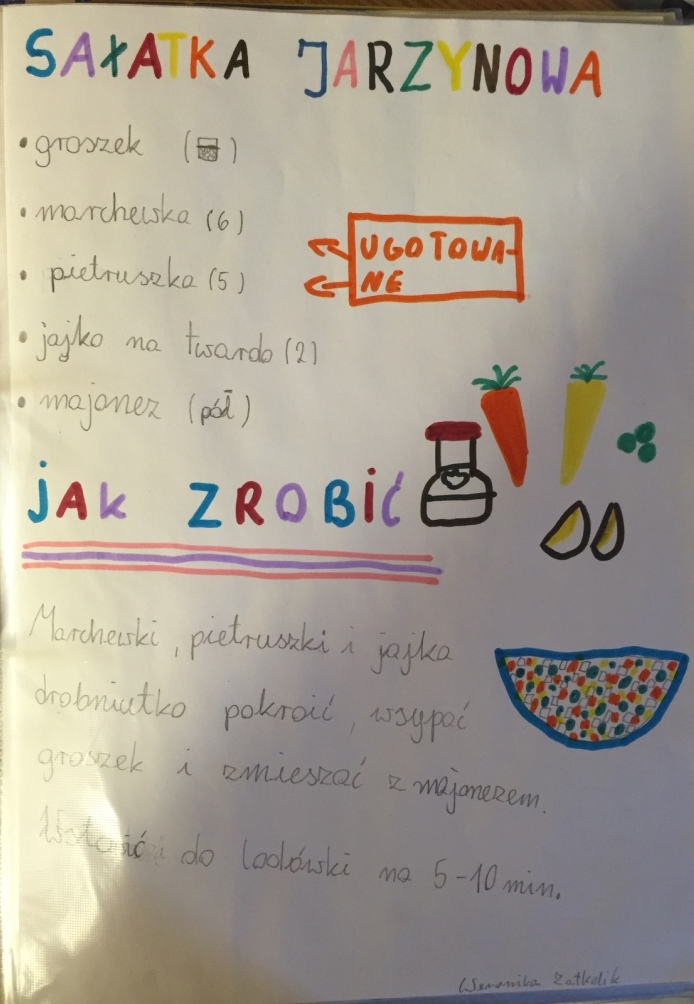 SAŁATKA JARZYNOWA
• groszek ( )
• marchewka (6)
• pietruszka (5)
UGOTOWA-
NE
• jajko na twardo (2)
• majonez (pół)
JAK ZROBIĆ
Marchewki, pietruszki i jajka
drobniutko pokroić, wsypać
groszek i zmieszać z majonezem.
Włożyć do lodówski na 5-10 min.
Weronika